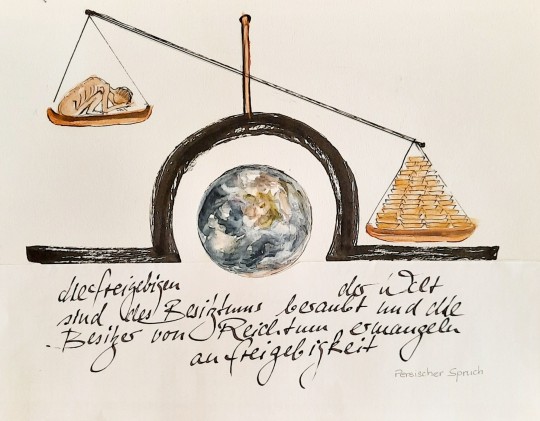 die freigebigen der Welt
sind des Besitztums beraubt und die
Besitzer von Reichtum ermangeln
an freigebigkeit
Persischer Spruch